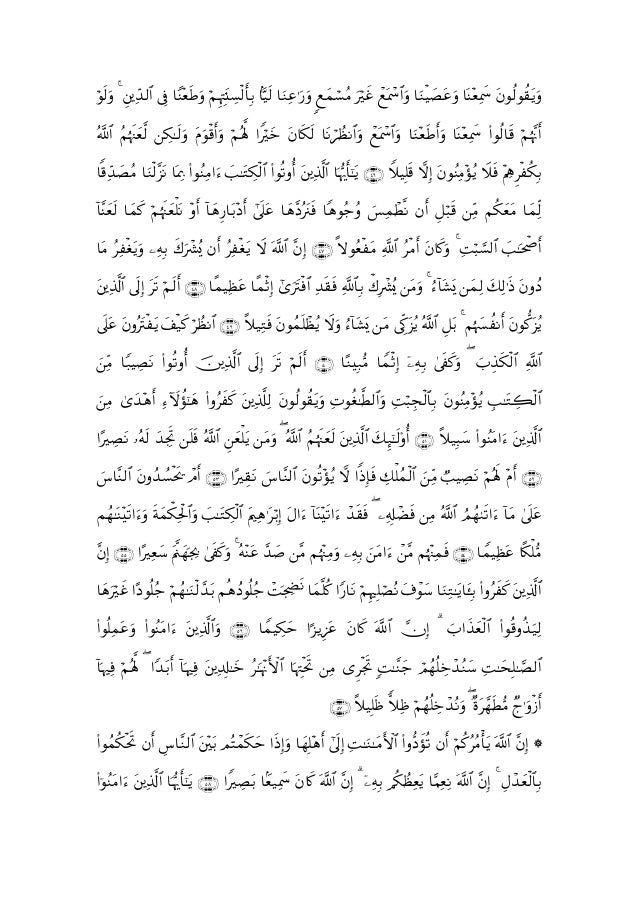 وَيَقُولُونَ سَمِعۡنَا وَعَصَيۡنَا وَٱسۡمَعۡ غَيۡرَ مُسۡمَعٖ وَرَٰعِنَا لَيَّۢا بِأَلۡسِنَتِهِمۡ وَطَعۡنٗا فِي ٱلدِّينِۚ وَلَوۡ
أَنَّهُمۡ قَالُواْ سَمِعۡنَا وَأَطَعۡنَا وَٱسۡمَعۡ وَٱنظُرۡنَا لَكَانَ خَيۡرٗا لَّهُمۡ وَأَقۡوَمَ وَلَٰكِن لَّعَنَهُمُ ٱللَّهُ
بِكُفۡرِهِمۡ فَلَا يُؤۡمِنُونَ إِلَّا قَلِيلٗا ٤٦ يَٰٓأَيُّهَا ٱلَّذِينَ أُوتُواْ ٱلۡكِتَٰبَ ءَامِنُواْ بِمَا نَزَّلۡنَا مُصَدِّقٗا
لِّمَا مَعَكُم مِّن قَبۡلِ أَن نَّطۡمِسَ وُجُوهٗا فَنَرُدَّهَا عَلَىٰٓ أَدۡبَارِهَآ أَوۡ نَلۡعَنَهُمۡ كَمَا لَعَنَّآ
أَصۡحَٰبَ ٱلسَّبۡتِۚ وَكَانَ أَمۡرُ ٱللَّهِ مَفۡعُولًا ٤٧ إِنَّ ٱللَّهَ لَا يَغۡفِرُ أَن يُشۡرَكَ بِهِۦ وَيَغۡفِرُ مَا
دُونَ ذَٰلِكَ لِمَن يَشَآءُۚ وَمَن يُشۡرِكۡ بِٱللَّهِ فَقَدِ ٱفۡتَرَىٰٓ إِثۡمًا عَظِيمًا ٤٨ أَلَمۡ تَرَ إِلَى ٱلَّذِينَ
يُزَكُّونَ أَنفُسَهُمۚ بَلِ ٱللَّهُ يُزَكِّي مَن يَشَآءُ وَلَا يُظۡلَمُونَ فَتِيلًا ٤٩ ٱنظُرۡ كَيۡفَ يَفۡتَرُونَ عَلَى
ٱللَّهِ ٱلۡكَذِبَۖ وَكَفَىٰ بِهِۦٓ إِثۡمٗا مُّبِينًا ٥٠ أَلَمۡ تَرَ إِلَى ٱلَّذِينَ أُوتُواْ نَصِيبٗا مِّنَ
ٱلۡكِتَٰبِ يُؤۡمِنُونَ بِٱلۡجِبۡتِ وَٱلطَّٰغُوتِ وَيَقُولُونَ لِلَّذِينَ كَفَرُواْ هَٰٓؤُلَآءِ أَهۡدَىٰ مِنَ
ٱلَّذِينَ ءَامَنُواْ سَبِيلًا ٥١ أُوْلَٰٓئِكَ ٱلَّذِينَ لَعَنَهُمُ ٱللَّهُۖ وَمَن يَلۡعَنِ ٱللَّهُ فَلَن تَجِدَ لَهُۥ نَصِيرًا
٥٢ أَمۡ لَهُمۡ نَصِيبٞ مِّنَ ٱلۡمُلۡكِ فَإِذٗا لَّا يُؤۡتُونَ ٱلنَّاسَ نَقِيرًا ٥٣ أَمۡ يَحۡسُدُونَ ٱلنَّاسَ
عَلَىٰ مَآ ءَاتَىٰهُمُ ٱللَّهُ مِن فَضۡلِهِۦۖ فَقَدۡ ءَاتَيۡنَآ ءَالَ إِبۡرَٰهِيمَ ٱلۡكِتَٰبَ وَٱلۡحِكۡمَةَ وَءَاتَيۡنَٰهُم
مُّلۡكًا عَظِيمٗا ٥٤ فَمِنۡهُم مَّنۡ ءَامَنَ بِهِۦ وَمِنۡهُم مَّن صَدَّ عَنۡهُۚ وَكَفَىٰ بِجَهَنَّمَ سَعِيرًا ٥٥ إِنَّ
ٱلَّذِينَ كَفَرُواْ بِـَٔايَٰتِنَا سَوۡفَ نُصۡلِيهِمۡ نَارٗا كُلَّمَا نَضِجَتۡ جُلُودُهُم بَدَّلۡنَٰهُمۡ جُلُودًا غَيۡرَهَا
لِيَذُوقُواْ ٱلۡعَذَابَۗ إِنَّ ٱللَّهَ كَانَ عَزِيزًا حَكِيمٗا ٥٦ وَٱلَّذِينَ ءَامَنُواْ وَعَمِلُواْ
ٱلصَّٰلِحَٰتِ سَنُدۡخِلُهُمۡ جَنَّٰتٖ تَجۡرِي مِن تَحۡتِهَا ٱلۡأَنۡهَٰرُ خَٰلِدِينَ فِيهَآ أَبَدٗاۖ لَّهُمۡ فِيهَآ
أَزۡوَٰجٞ مُّطَهَّرَةٞۖ وَنُدۡخِلُهُمۡ ظِلّٗا ظَلِيلًا ٥٧
۞ إِنَّ ٱللَّهَ يَأۡمُرُكُمۡ أَن تُؤَدُّواْ ٱلۡأَمَٰنَٰتِ إِلَىٰٓ أَهۡلِهَا وَإِذَا حَكَمۡتُم بَيۡنَ ٱلنَّاسِ أَن تَحۡكُمُواْ
بِٱلۡعَدۡلِۚ إِنَّ ٱللَّهَ نِعِمَّا يَعِظُكُم بِهِۦٓۗ إِنَّ ٱللَّهَ كَانَ سَمِيعَۢا بَصِيرٗا ٥٨ يَٰٓأَيُّهَا ٱلَّذِينَ ءَامَنُوٓاْ